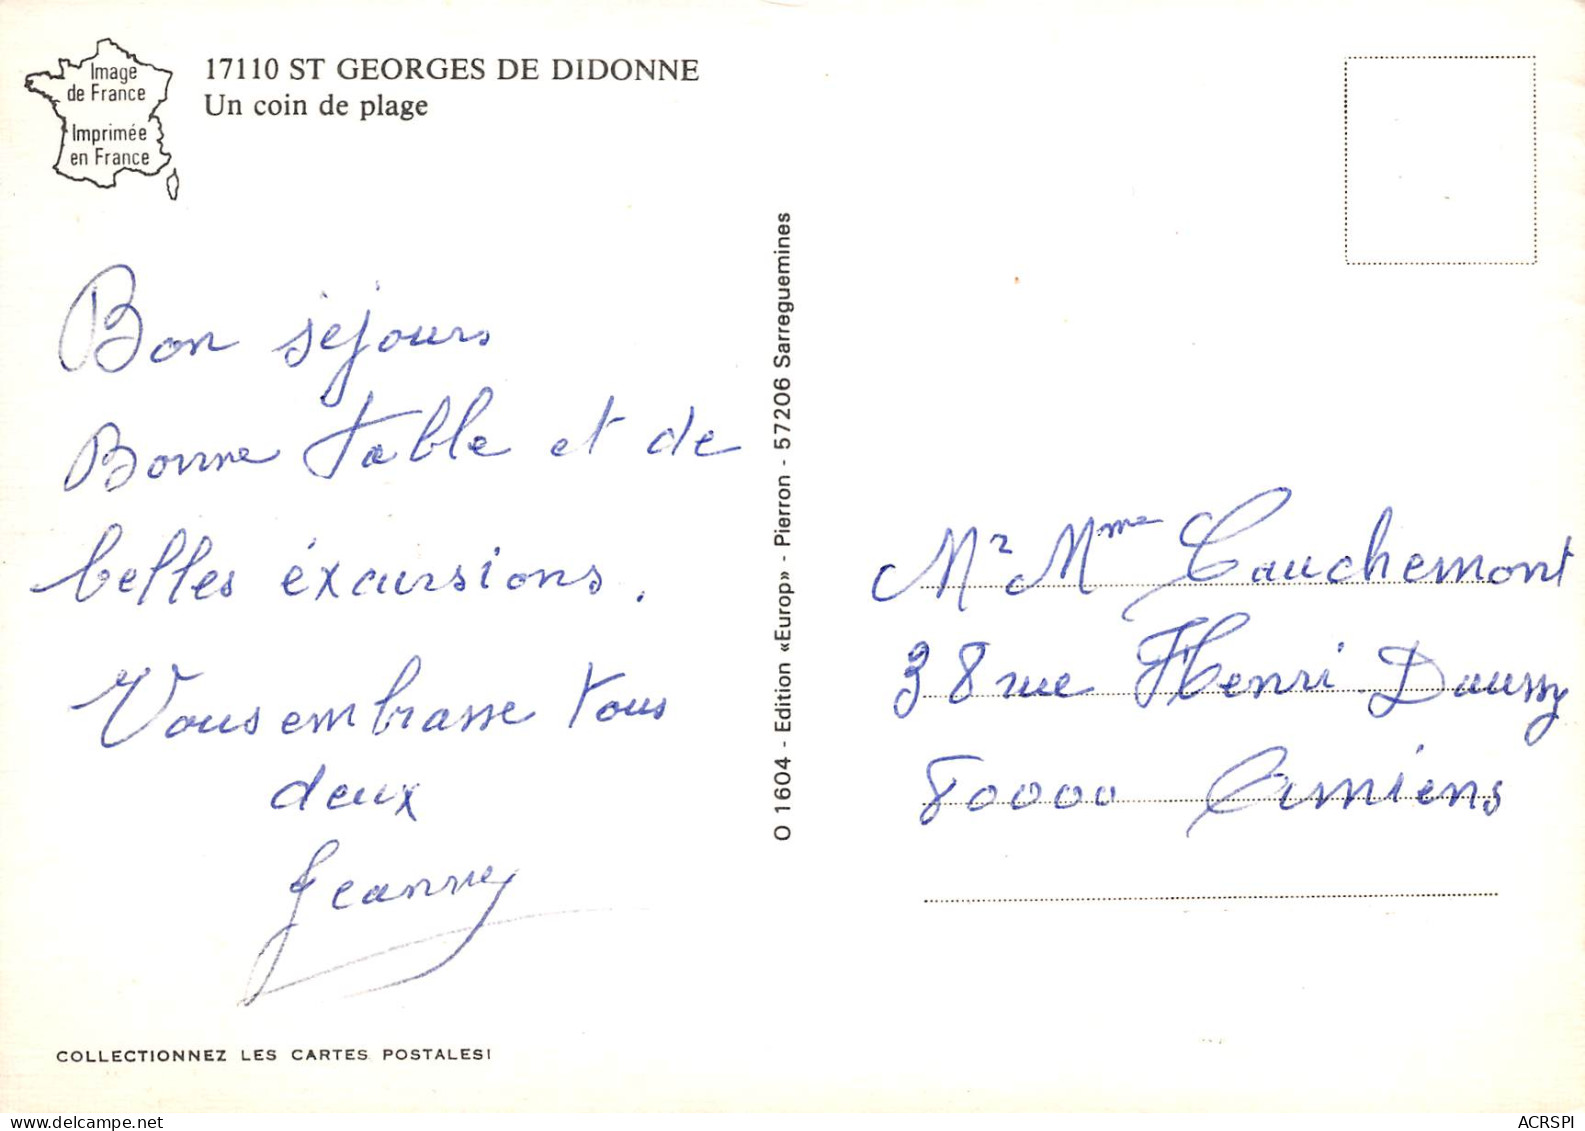 Image
de France
Imprimée
en France
17110 ST GEORGES DE DIDONNE
Un coin de plage
Bon séjours
Bonne table et de
belles éxcursions.
Vous embrasse tous
deux
Jeanne
COLLECTIONNEZ LES CARTES POSTALES!
O 1604 - Edition «Europ» - Pierron - 57206 Sarreguemines
Mr Mme Cauchemont
38 rue Henri Daussy
80000 Amiens
delcampe.net
ACRSPI